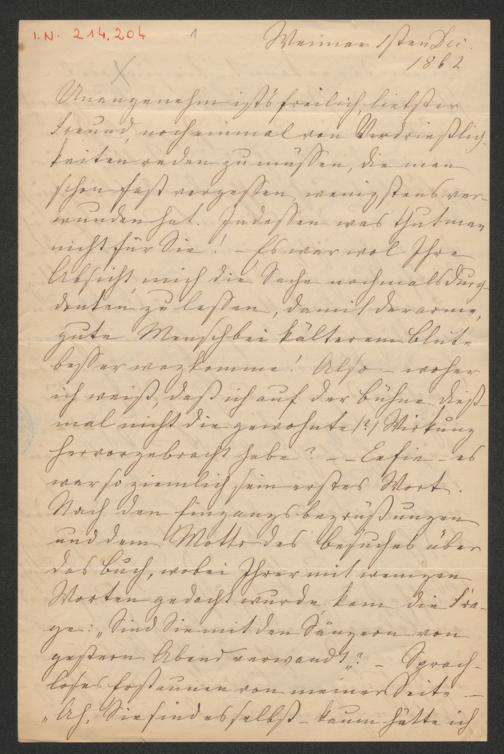 I.N. 214.204
1
Weimar 1sten Dec.
1862
Unangenehm ist's freilich, liebster
Freund, noch einmal von Verdrießlich-
keiten reden zu müssen, die man
schon fast vergessen, wenigstens ver-
wunden hat. Indessen was thut man
nicht für Sie! – Es war wol Ihre
Absicht, mich die Sache nochmals durch-
denken zu lassen, damit der arme,
gute Mensch bei kälterem Blute
besser wegkomme! Also – woher
ich weiß, daß ich auf der Bühne dieß-
mal nicht die gewohnte (?) Wirkung
hervorgebracht habe? – – es
war so ziemlich sein erstes Wort.
Nach den Eingangsbegrüßungen
und dem Motto des Besuches über
das Buch, wobei Ihrer mit wenigen
Worten gedacht wurde, kam die Fra-
ge: „Sind Sie mit den Sängern von
gestern Abend verwandt"? – Sprach-
loses Erstaunen von meiner Seite –
„Ah, Sie sind es selbst – kaum hätte ich